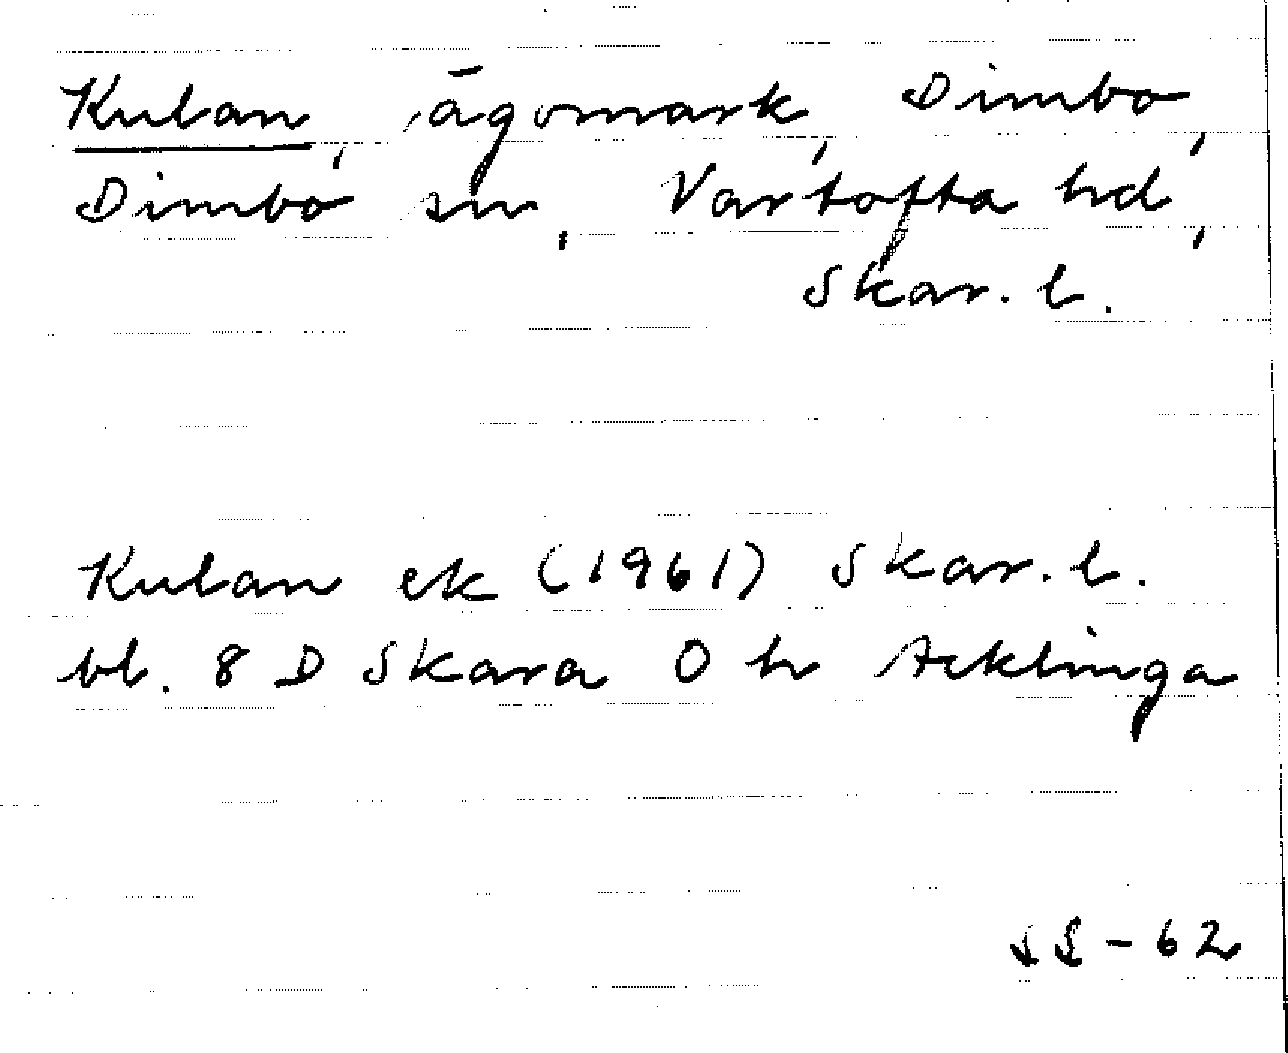 Kulan, ägomark, Dimbo,
Dimbo sn, Vartofta hd,
Skar. l.
Kulan ek (1961) Skar. l.
bl. 8 D Skara 0 h Acklinga
SS-62